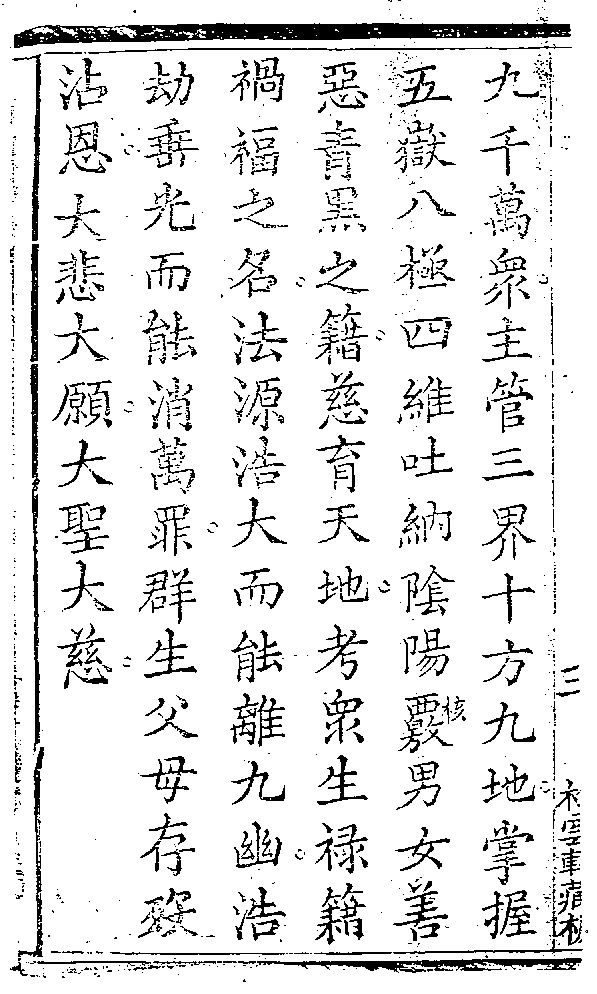 九千萬衆主管三界十方九地掌握
五嶽八極四維吐納陰陽覈核男女善
惡青黑之籍慈育天地考衆生祿籍
禍福之名法源浩大而能離九幽浩
劫垂光而能消萬罪群生父母存歿
沾恩大悲大願大聖大慈
三